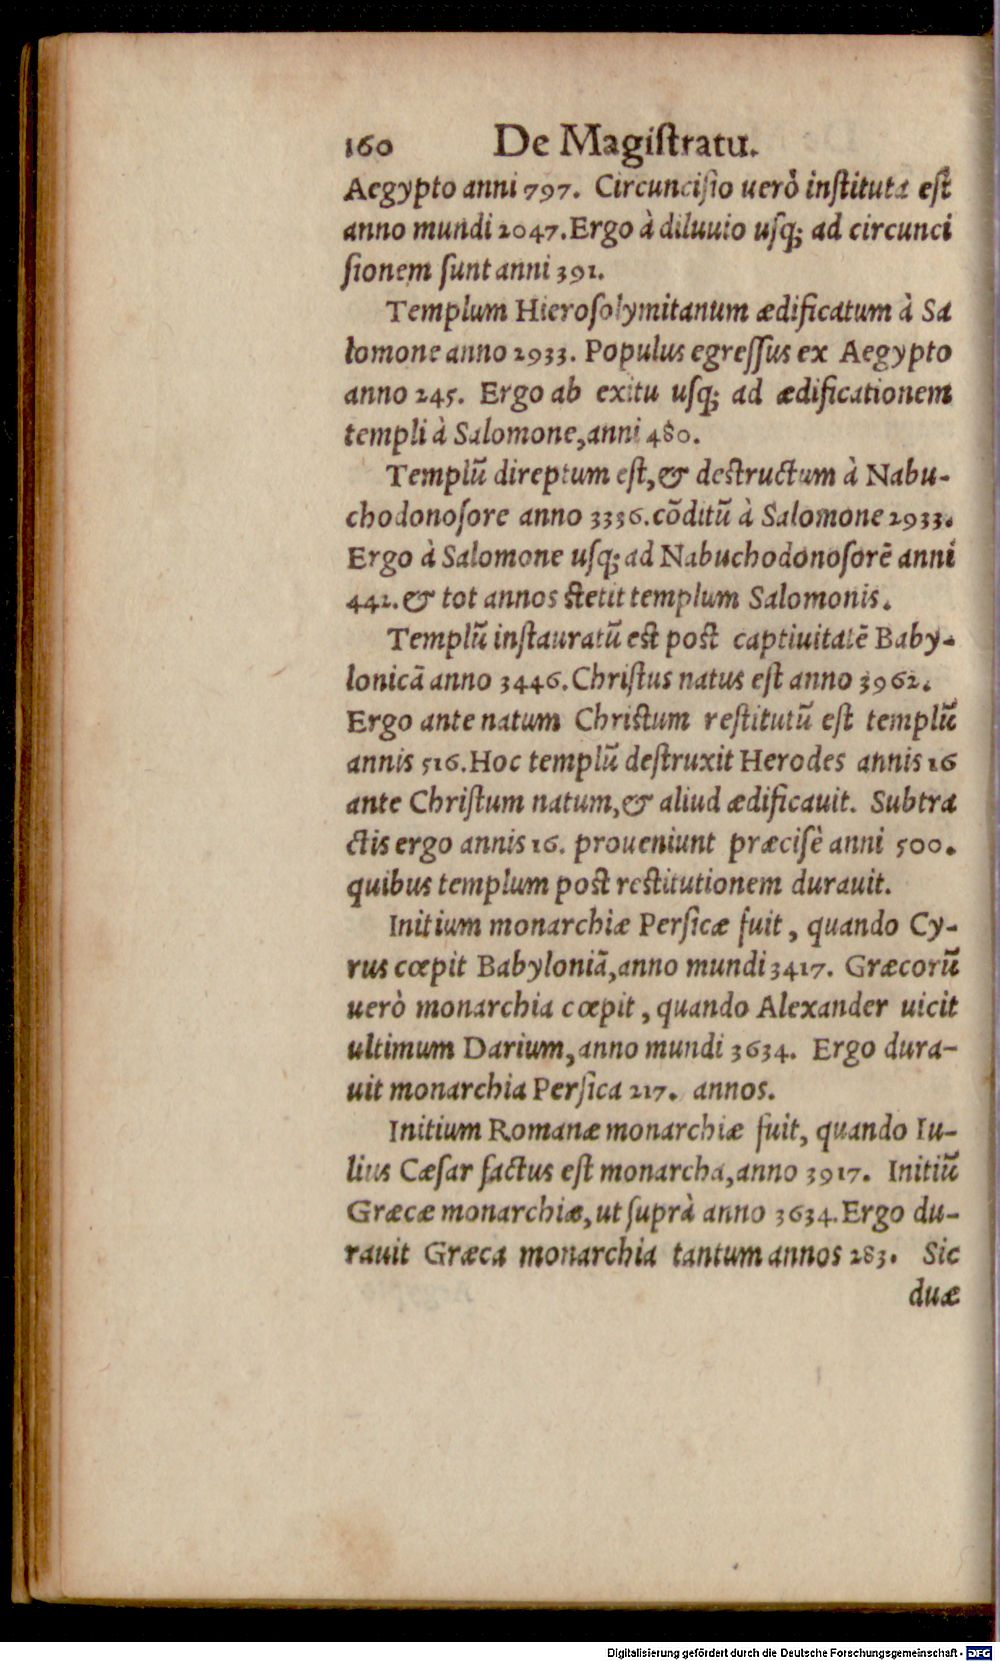 160 De Magiſtratu.
Aegypto anni 797. Circunciſio uerò inſtituta eſt
anno mundi 2047. Ergo à diluuio uſq; ad circunci
ſionem ſunt anni 391.
Templum Hieroſolymitanum ædificatum à Sa
lomone anno 2933. Populus egreſſus ex Aegypto
anno 245. Ergo ab exitu uſq; ad ædificationem
templi à Salomone, anni 480.
Templũ direptum eſt, & deſtructum à Nabu-
chodonoſore anno 3336. cõditũ à Salomone 2933.
Ergo à Salomone uſq; ad Nabuchodonoſorẽ anni
442. & tot annos ſtetit templum Salomonis.
Templũ inſtauratũ eſt poſt captiuitatẽ Baby-
lonicã anno 3446. Chriſtus natus eſt anno 3962.
Ergo ante natum Chriſtum reſtitutũ eſt templũ
annis 516. Hoc templũ deſtruxit Herodes annis 16
ante Chriſtum natum, & aliud ædificauit. Subtra
ctis ergo annis 16. proueniunt præciſè anni 500.
quibus templum poſt reſtitutionem durauit.
Initium monarchiæ Perſicæ fuit, quando Cy-
rus cœpit Babyloniã, anno mundi 3417. Græcorũ
uerò monarchia cœpit, quando Alexander uicit
ultimum Darium, anno mundi 3634. Ergo dura-
uit monarchia Perſica 217. annos.
Initium Romanæ monarchiæ fuit, quando Iu-
lius Cæſar factus eſt monarcha, anno 3917. Initiũ
Græcæ monarchiæ, ut ſuprà anno 3634. Ergo du-
rauit Græca monarchia tantum annos 283. Sic
duæ
Digitalisierung gefördert durch die Deutsche Forschungsgemeinschaft - DFG